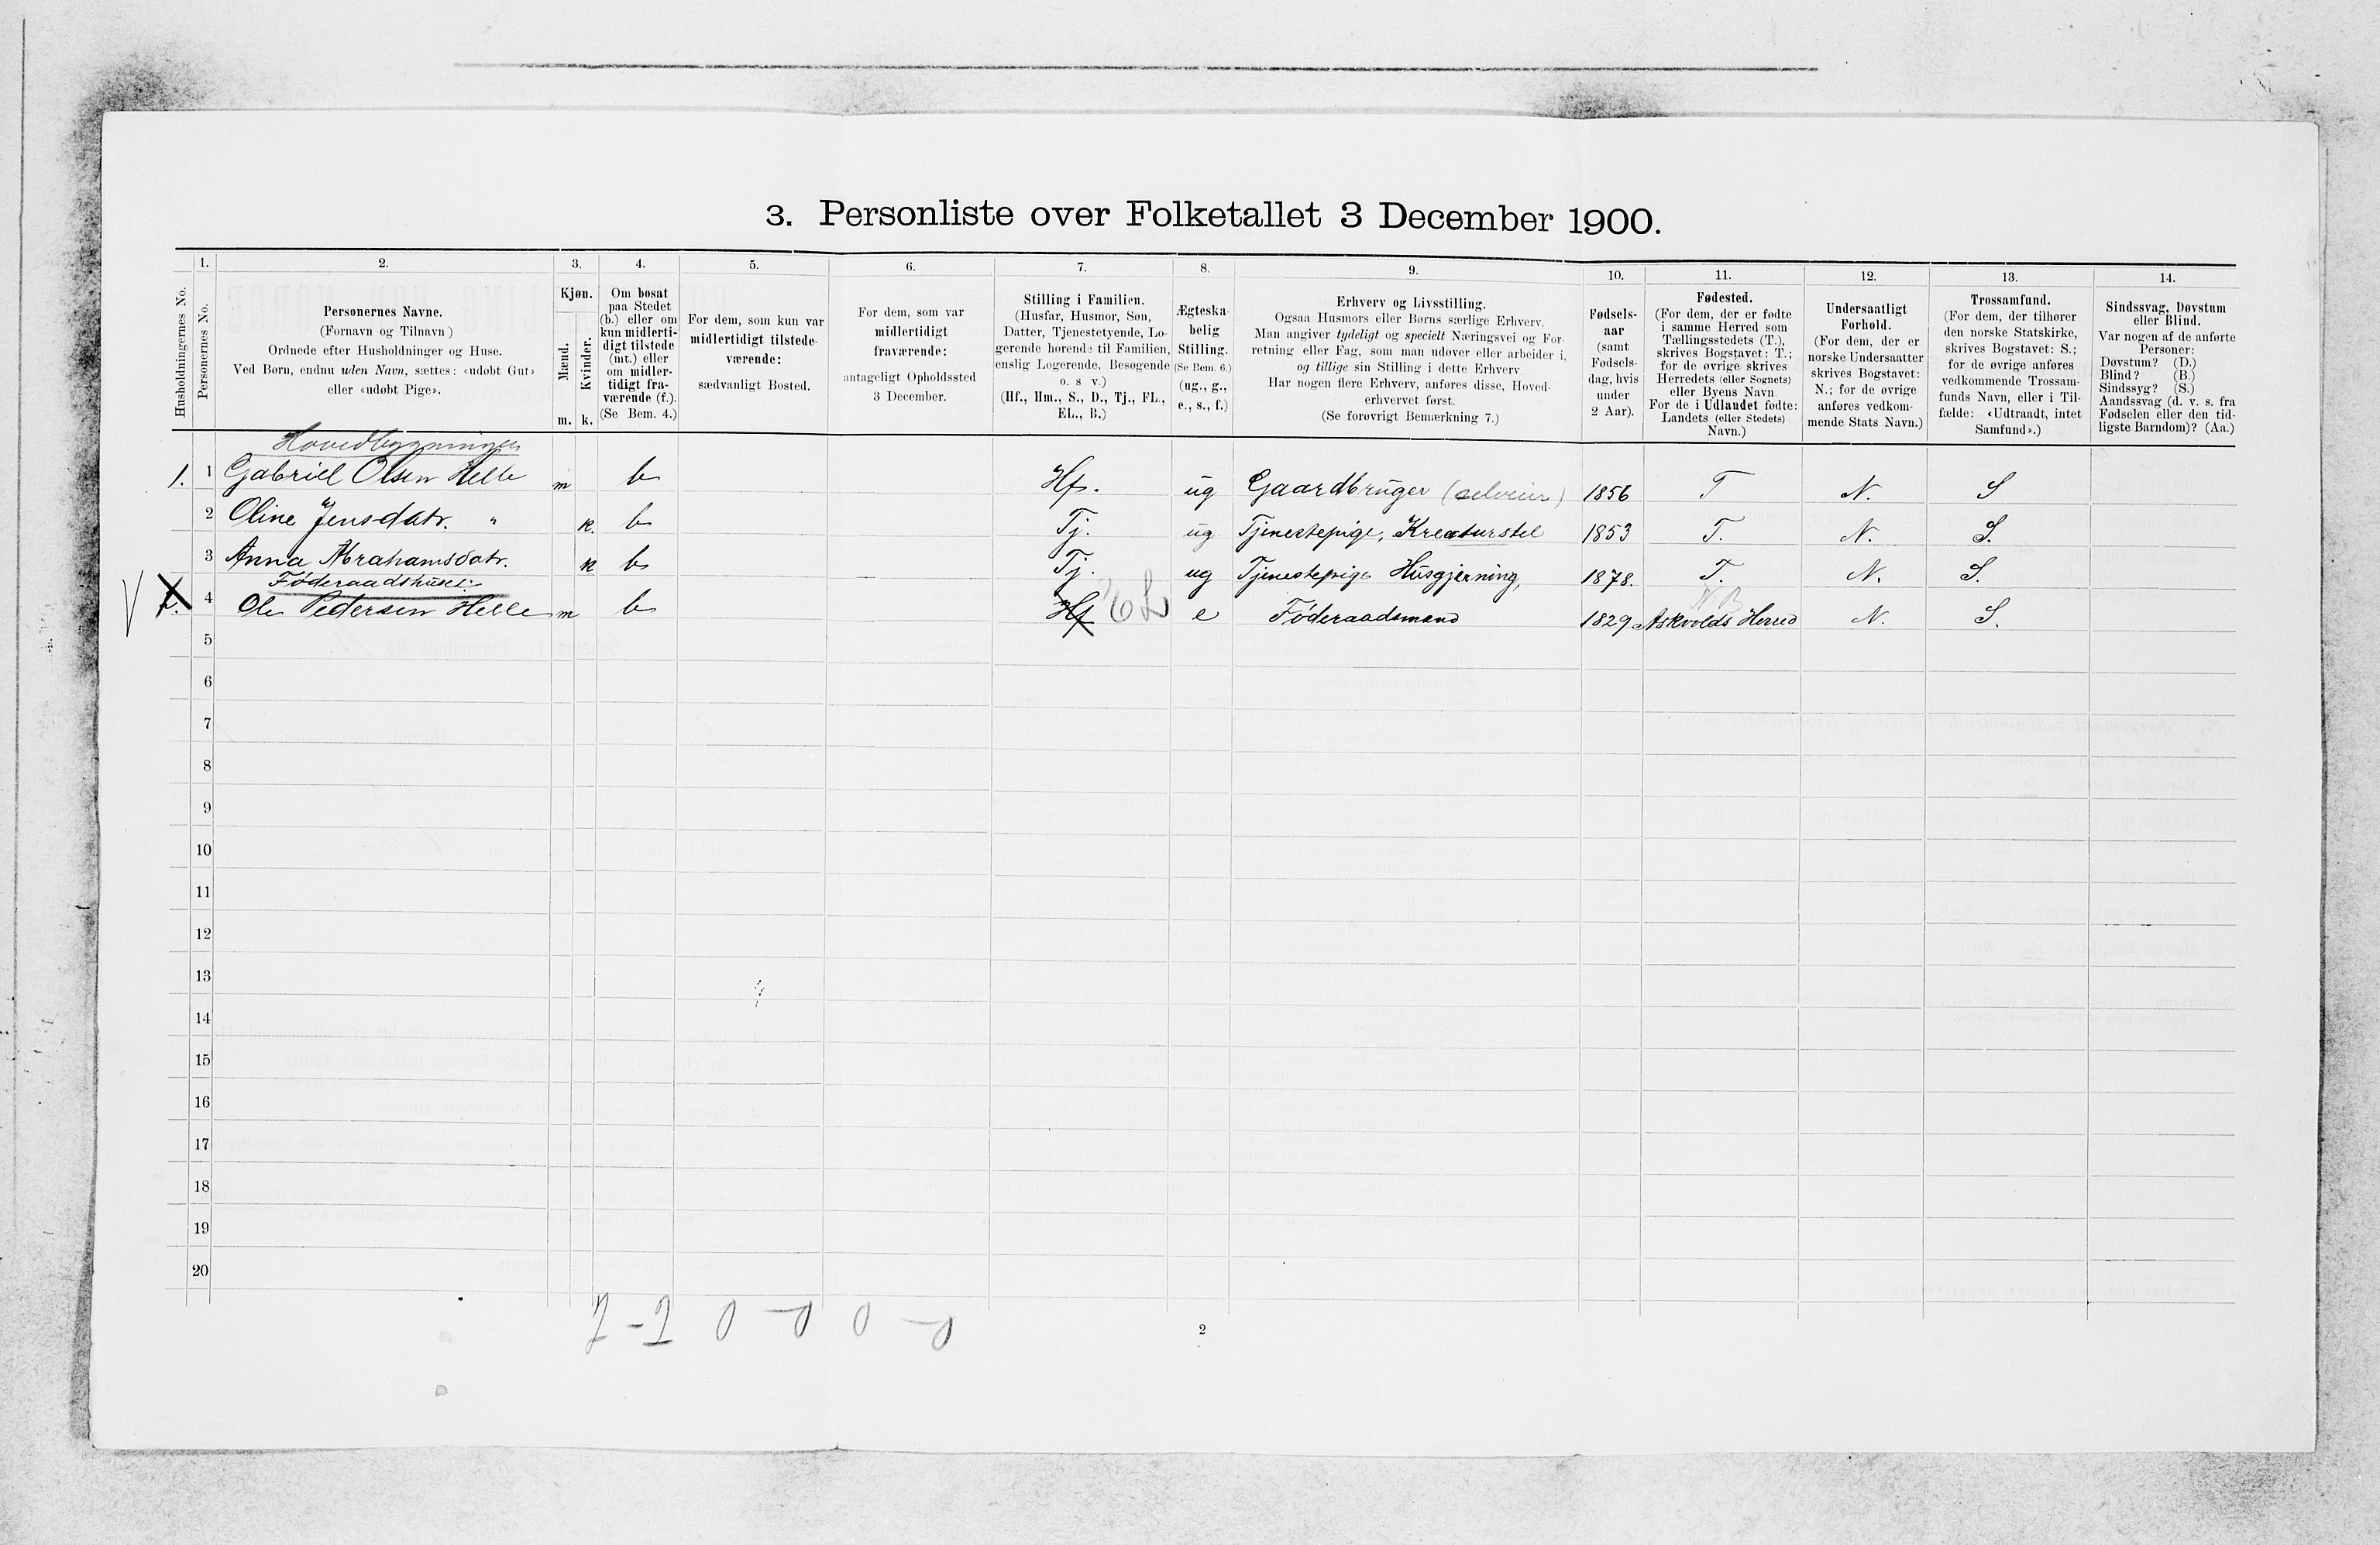 3. Personliste over Folketallet 3 December 1900.
1. 2. 3. 4. 5. 6. 7. 8. 9. 10. 11. 12. 13. 14.
Husholdningernes No.
Personernes No.
Personernes Navne.
(Fornavn og Tilnavn)
Ordnede efter Husholdninger og Huse.
Ved Børn, endnu uden Navn, sættes: «udøbt Gut»
eller «udøbt Pige».
Kjøn.
Mænd.
Kvinder.
m. k.
Om bosat
paa Stedet
(b.) eller om
kun midlerti-
digt tilstede
(mt.) eller
om midler-
tidigt fra-
værende (f.).
(Se Bem. 4.)
For dem, som kun var
midlertidigt tilstede-
værende:
sædvanligt Bosted.
For dem, som var
midlertidigt
fraværende:
antageligt Opholdssted
3 December.
Stilling i Familien.
(Husfar, Husmor, Søn,
Datter, Tjenestetyende, Lo-
gerende hørende til Familien,
enslig Logerende, Besøgende
o. s. v.)
(Hf., Hm., S., D., Tj., FL.,
EL., B.)
Ægteska-
belig
Stilling.
(Se Bem. 6.)
(ug., g.,
e., s., f.)
Erhverv og Livsstilling.
Ogsaa Husmors eller Børns særlige Erhverv.
Man angiver tydeligt og specielt Næringsvei og For-
retning eller Fag, som man udøver eller arbeider i,
og tillige sin Stilling i dette Erhverv
Har nogen flere Erhverv, anføres disse, Hoved-
erhvervet først.
(Se forøvrigt Bemærkning 7.)
Fødsels-
aar
(samt
Fødsels-
dag, hvis
under
2 Aar).
Fødested.
(For dem, der er fødte
i samme Herred som
Tællingsstedets (T.),
skrives Bogstavet: T.;
for de øvrige skrives
Herredets (eller Sognets)
eller Byens Navn
For de i Udlandet fødte:
Landets (eller Stedets)
Navn.)
Undersaatligt
Forhold.
(For dem, der er
norske Undersaatter
skrives Bogstavet:
N.; for de øvrige
anføres vedkom-
mende Stats Navn.)
Trossamfund.
(For dem, der tilhører
den norske Statskirke,
skrives Bogstavet: S.;
for de øvrige anføres
vedkommende Trossam-
funds Navn, eller i Til-
fælde: «Udtraadt, intet
Samfund».)
Sindssvag, Døvstum
eller Blind.
Var nogen af de anførte
Personer:
Døvstum? (D.)
Blind? (B.)
Sindssyg? (S.)
Aandssvag (d. v. s. fra
Fødselen eller den tid-
ligste Barndom)? (Aa.)
Hovedbygningen
1. 1 Gabriel Olsen Helle m b Hf. ug Gaardbruger (selveier) 1856 T N. S
2 Oline Jensdatr. " k. b Tj. ug Tjenestepige, Kreaturstel 1853 T. N. S.
3 Anna Abrahamsdatr. k b Tj. ug Tjenestepige Husgjerning, 1878. T. N. S.
Føderaadshuset:
2. 4 Ole Pedersen Helle m b Hf EL e Føderaadsmand 1829 Askvolds Herred N. S.
NB
5
6
7
8
9
10
11
12
13
14
15
16
17
18
19
20
2